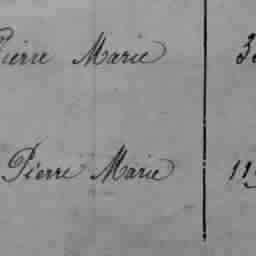 Pierre Marie
Pierre Marie 11